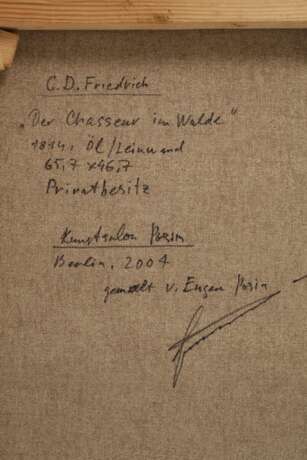 C.D. Friedrich
„Der Chasseur im Walde"
1814, Öl/Leinwand
65,7 x 46,7
Privatbesitz
Kunstsalon Posin
Berlin, 2004
gemalt v. Eugen Posin